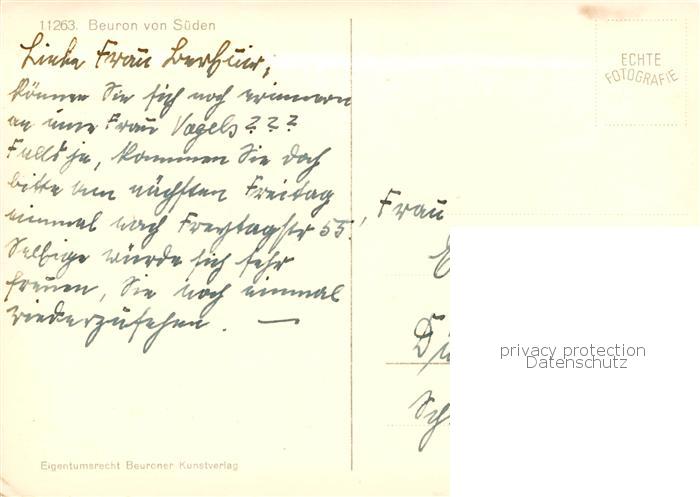 11263. Beuron von Süden
Liebe Frau
können Sie sich noch erinnern
an eine Frau Vogels???
Falls ja, kommen Sie doch
bitte am nächsten Freitag
einmal nach Freytagstr 55.
Selbige würde sich sehr
freuen, Sie noch einmal
wiederzusehen. —
Eigentumsrecht Beuroner Kunstverlag
ECHTE
FOTOGRAFIE
Frau
privacy protection
Datenschutz